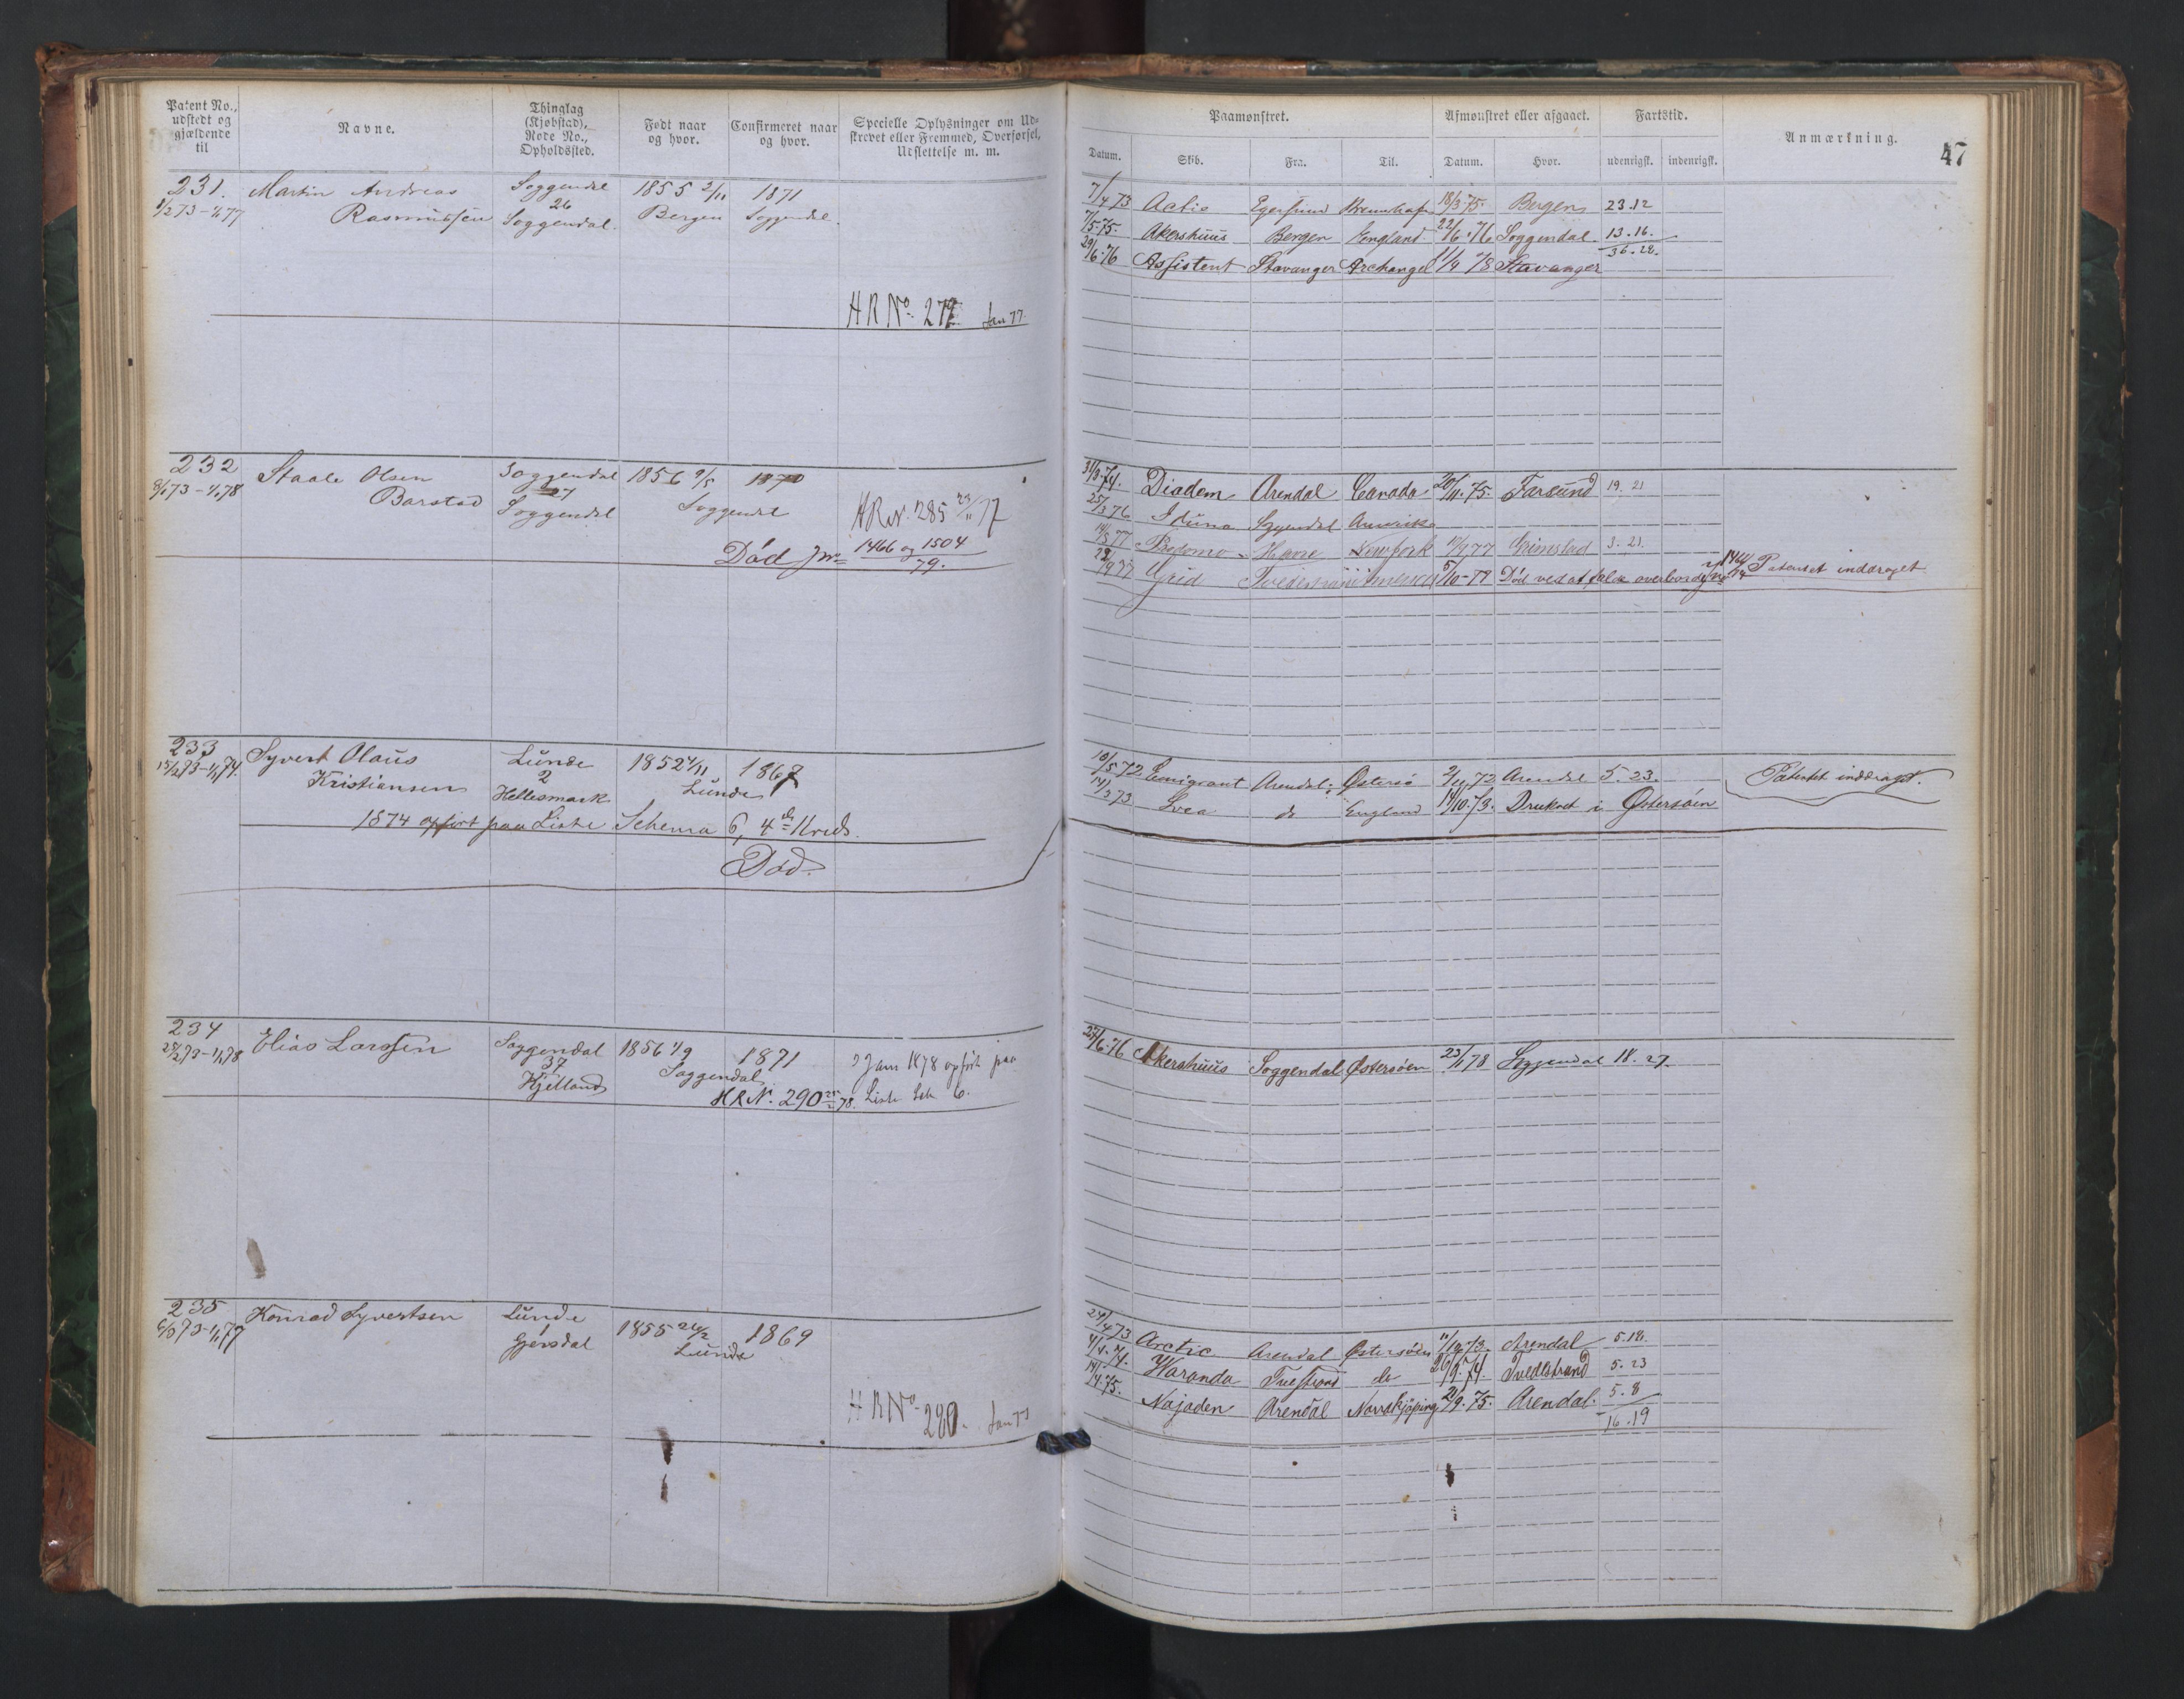 Patent No., udstedt og gjældende til
Navne.
Thinglag (Kjøbstad), Rode No., Opholdssted.
Født naar og hvor.
Confirmeret naar og hvor.
Specielle Oplysninger om Udskrevet eller Fremmed, Overførsel, Udslettelse m. m.
Paamønstret.
Afmønstret eller afgaaet.
Fartstid.
Anmærkning.
47
Datum.
Skib.
Fra.
Til.
Datum.
Hvor.
udenrigsk.
indenrigsk.
231. Martin Andreas Soggendal 1855 2/11 1871
1/2 73 - 1/1 77 Rasmussen 26 Soggendal. Bergen Soggendal
HR No. 277. Jan 77.
7/4 73 Actie Egersund 18/3 75. Bergen 23.12
7/5 75. Akershuus Bergen England 22/6 76 Soggendal. 13.16.
36.28.
29/6 76 Assistent Stavanger Archangel 11/9 78 Stavanger
232 Staale Olsen Soggendal 1856 9/5 1870
73 - 1/1 78 Barstad 27 Soggendal Soggendal
HR No. 285 77
Død Jnr 1466 og 1504
79.
31/3 74. Diadem Arendal Canada 20/11. 75. Farsund 19. 21
25/3 76 Iduna Soggendal Amerika
14/3 77 Havre Newyork 77 Grimstad 3. 21.
77 Grid Tvedestrand 5/10 - 77 Død ved at falde overbord Patentet inddraget
233 Syvert Olaus Lunde 1852 4/11 1867
15/2 73 - 1/1 74. Kristiansen 2 Hellesmark Lunde
1874 opført paa Liste Schema 6, 4de Kreds.
Død.
10/5 72 Emigrant Arendal Østersø 2/11 72 Arendal 5. 23. Patentet inddraget.
14/3 73 Svea do England 14/10. 73. Druknet i Østersøen
234 Elias Larssen Soggendal 1856 1/9 1871
2/2 73 - 1/1 78 37 Kjelland Soggendal
Jan 1878 opført paa
HR N. 290 78. Liste Sch 6.
27/6 76 Akershuus Soggendal Østersøen 23/1 78 Soggendal 18. 27.
235 Konrad Syvertsen Lunde 1855 26/2 1869
6/3 73 - 1/1 77 1 Gjersdal Lunde
HR No. 280. Jan 77
29/4 73 Arctic Arendal Østersøen 11/10 73. Arendal 5.18.
4/4. 74. Waranda Tvestrand do 26/9. 74. Tvedestrand 5. 23
14/4. 75. Najaden Arendal Norrskjøping 21/9. 75. Arendal. 5. 8
16.19